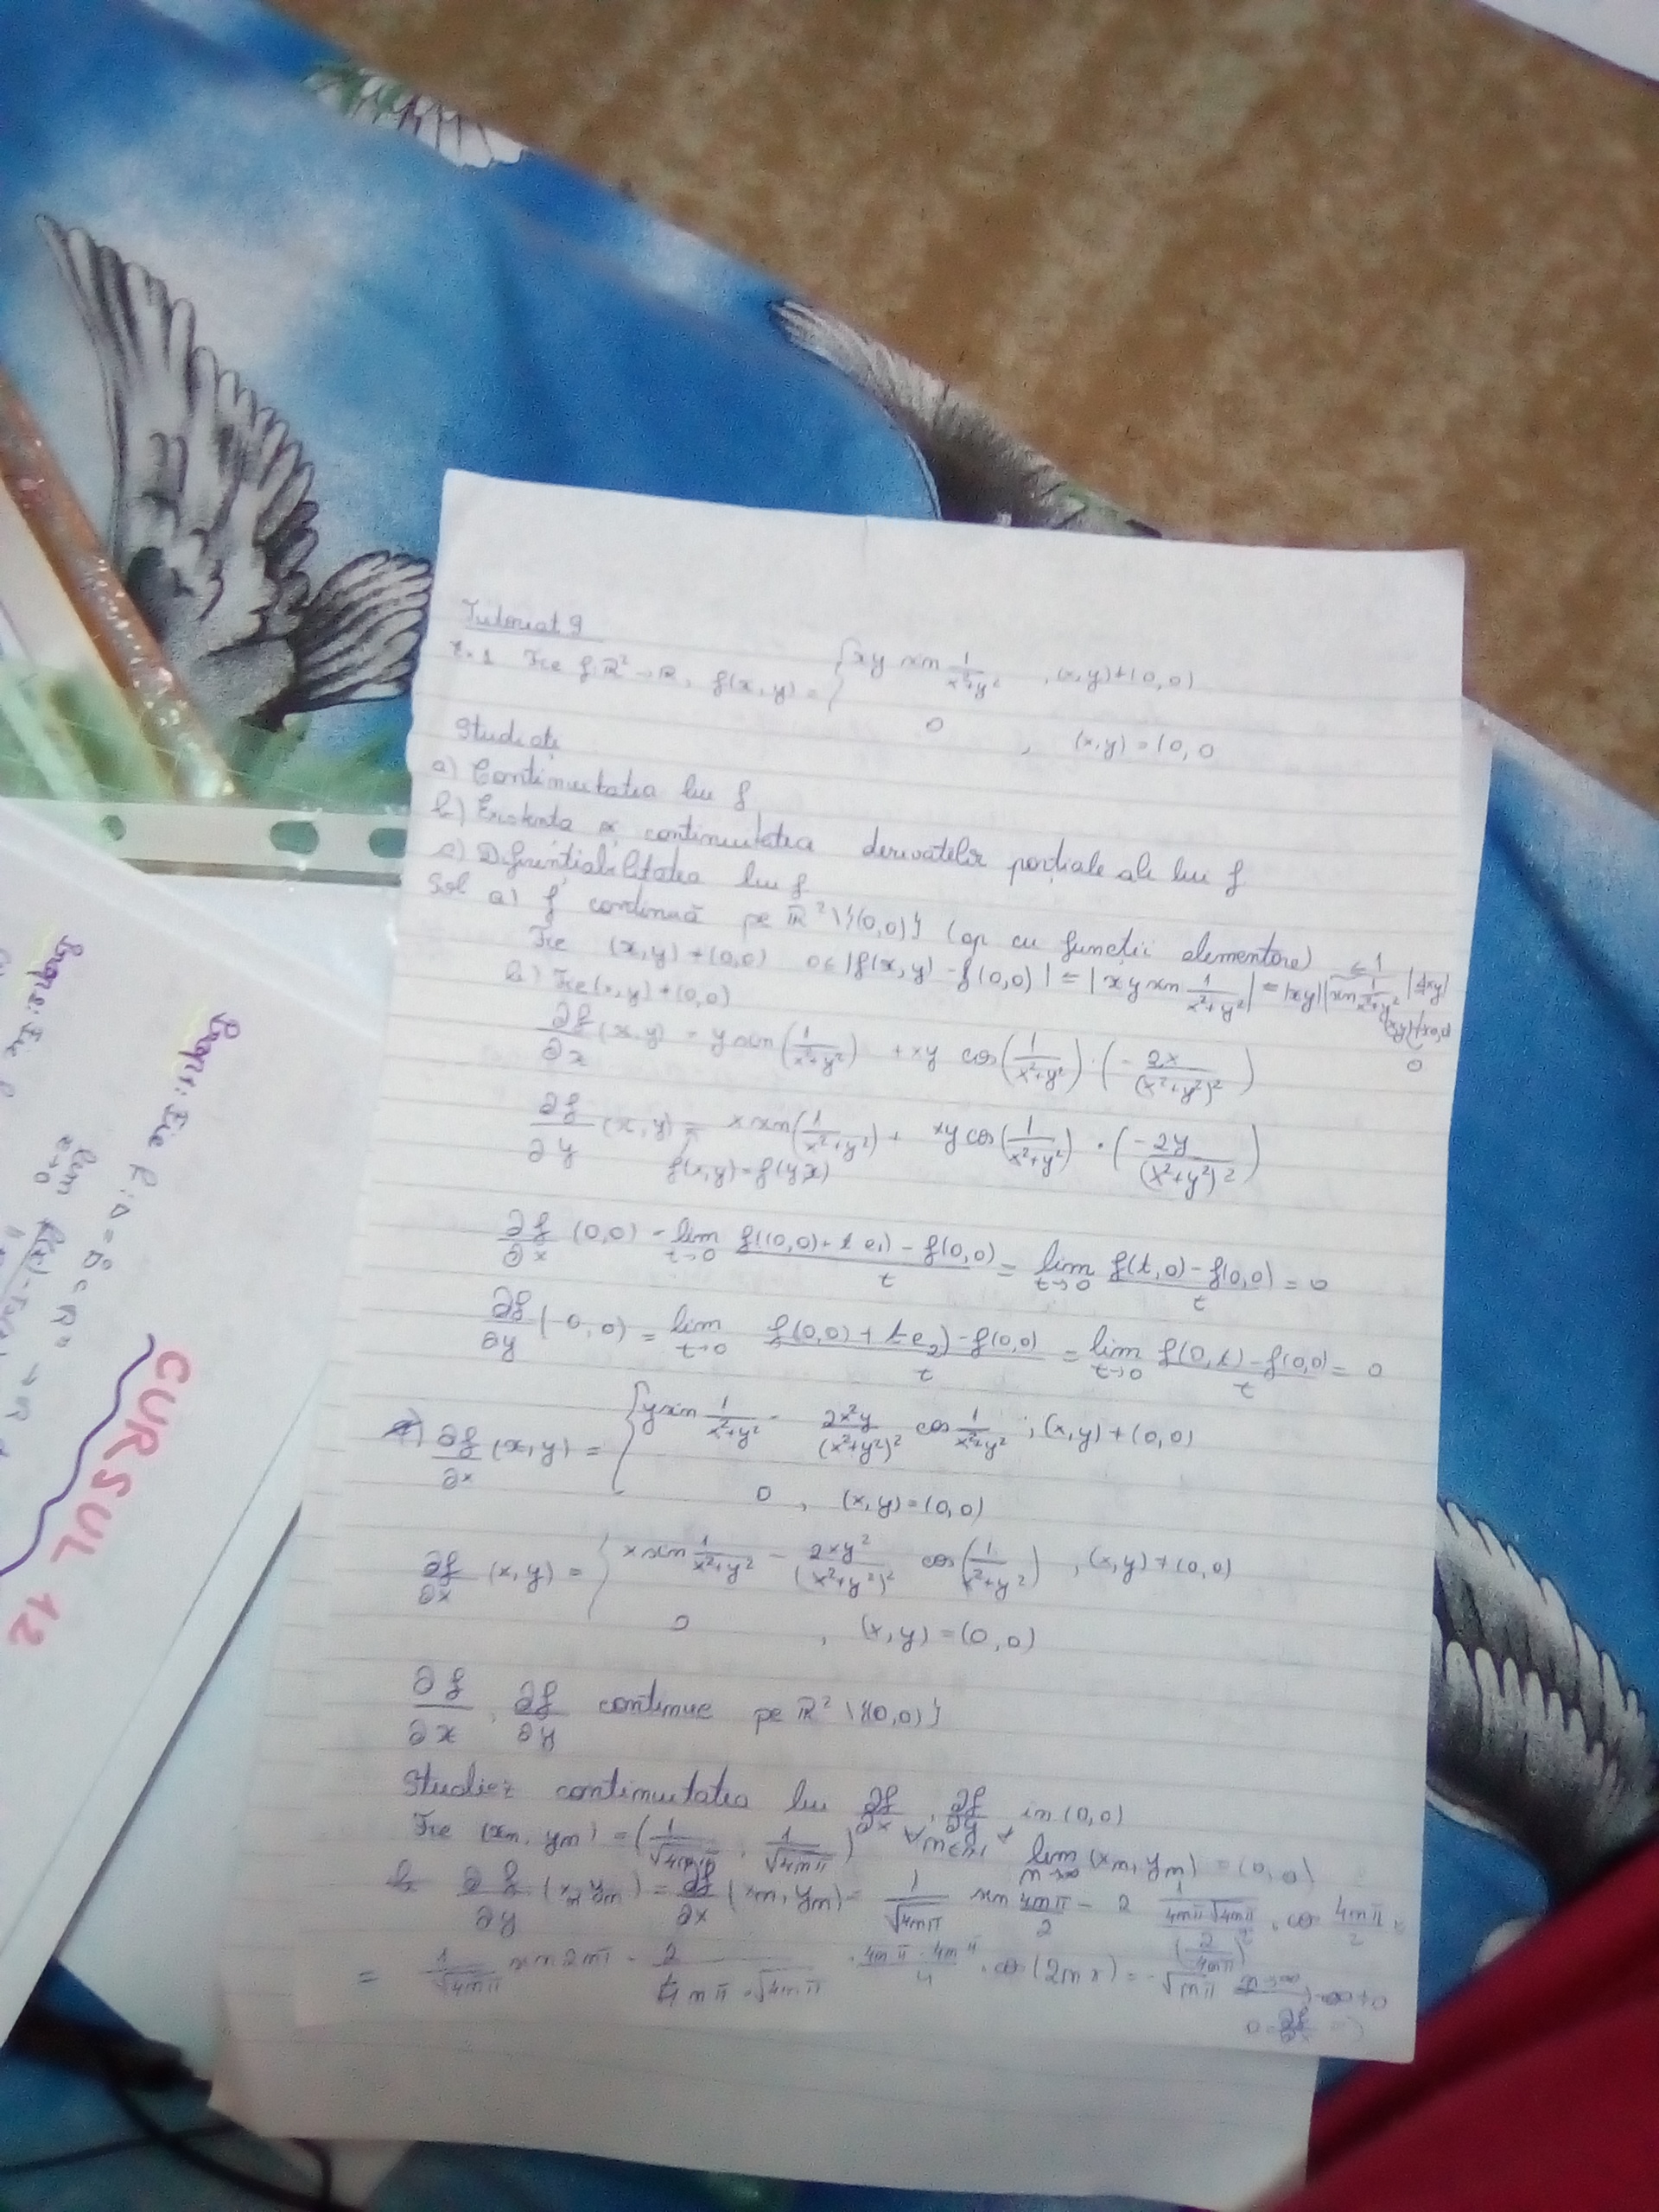 Tutoriat 9
Ex. 1 Fie f: R² → R, f(x,y) = { xy sin 1/(x²+y²) , (x,y) ≠ (0,0)
0 , (x,y) = (0,0
Studiați
a) Continuitatea lui f
b) Existența și continuitatea derivatelor parțiale ale lui f
c) Diferențiabilitatea lui f
Sol a) f continuă pe R² \ {(0,0)} (op cu funcții elementare)
Fie (x,y) ≠ (0,0) 0 ≤ |f(x,y) - f(0,0)| = |xy sin 1/(x²+y²)| = |xy| |sin 1/(x²+y²)| ≤ |xy|
≤ 1
(x,y)→(0,0)
0
b) Fie (x,y) ≠ (0,0)
∂f/∂x (x,y) = y sin(1/(x²+y²)) + xy cos(1/(x²+y²)) · (- 2x/(x²+y²)²)
∂f/∂y (x,y) = x sin(1/(x²+y²)) + xy cos(1/(x²+y²)) · (-2y/(x²+y²)²)
f(x,y) = f(y,x)
∂f/∂x (0,0) = lim t→0 (f((0,0) + t e₁) - f(0,0))/t = lim t→0 (f(t,0) - f(0,0))/t = 0
∂f/∂y (0,0) = lim t→0 (f(0,0) + t e₂) - f(0,0))/t = lim t→0 (f(0,t) - f(0,0))/t = 0
∂f/∂x (x,y) = { y sin 1/(x²+y²) - 2x²y/(x²+y²)² cos 1/(x²+y²) ; (x,y) ≠ (0,0)
0 , (x,y) = (0,0)
∂f/∂x (x,y) = { x sin 1/(x²+y²) - 2xy²/(x²+y²)² cos(1/(x²+y²)) , (x,y) ≠ (0,0)
0 , (x,y) = (0,0)
∂f/∂x , ∂f/∂y continue pe R² \ {(0,0)}
Studiez continuitatea lui ∂f/∂x , ∂f/∂y in (0,0)
Fie (xn, yn) = (1/√4nπ , 1/√4nπ) ∀ n ∈ N* lim n→∞ (xn, yn) = (0,0)
∂f/∂y (xn, yn) = ∂f/∂x (xn, yn) = 1/√4nπ sin 4nπ/2 - 2 (1/(4nπ√4nπ))/(2/4nπ)² · cos 4nπ/2 =
= 1/√4nπ sin 2nπ - 2/(4nπ · √4nπ) · (4nπ · 4nπ)/4 · cos(2nπ) = -√nπ n→∞ -∞ ≠ 0
CURSUL 12
Fie f: D = D̊ ⊂ Rⁿ → R